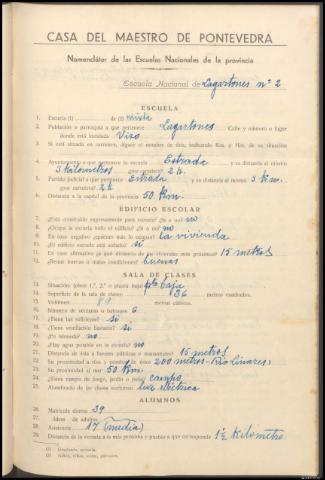 CASA DEL MAESTRO DE PONTEVEDRA
Nomenclátor de las Escuelas Nacionales de la provincia
Escuela Nacional de Lagartones nº 2
ESCUELA
1. Escuela (1) de (2) mixta
2. Población o parroquia a que pertenece Lagartones Calle y número o lugar
donde está instalada Viso
3. Si está situada en carretera, dígase el nombre de ésta, indicando Km. y Hm. de su situación
4. Ayuntamiento a que pertenece la escuela Estrada y su distancia al mismo
3 kilometros ¿por carretera? 2 h.
5. Partido judicial a que pertenece Estrada y su distancia al mismo 3 Km.
¿por carretera? 2 h
6. Distancia a la capital de la provincia 50 Km.
EDIFICIO ESCOLAR
7. ¿Está construído expresamente para escuela? ¿Sí o no? no
8. ¿Ocupa la escuela todo el edificio? ¿Sí o no? no
9. En caso negativo ¿quiénes más lo ocupan? La vivienda
10. ¿El edificio escuela está aislado? si
11. En caso afirmativo ¿a qué distancia de las viviendas más próximas? 15 metros
12. ¿Reune buenas o malas condiciones? buenas
SALA DE CLASES
13. Situación: (pisos 1.º, 2.º o planta baja) pta baja
14. Superficie de la sala de clases 36 metros cuadrados.
15. Volúmen 89 metros cúbicos.
16. Número de ventanas o balcones 6
17. ¿Tiene luz suficiente? si
18. ¿Tiene ventilación bastante? si
19. ¿Es húmeda? no
20. ¿Hay agua potable en la escuela? no
21. Distancia de ésta a fuentes públicas o manantiales 15 metros
22. Su proximidad a ríos y nombre de éstos 200 metros - Rio Linares
23. Su proximidad al mar 50 Km.
24. ¿Tiene campo de juego, jardín o patio? campo
25. Alumbrado de las clases nocturnas luz eléctrica
ALUMNOS
26. Matrícula diurna 39
27. Idem. de adultos
28. Asistencia 17 (media)
29. Distancia de la escuela a la más próxima y pueblo a que corresponde 1½ Kilometro
(1) Unitaria, graduada.
(2) Niños, niñas, mixta, párvulos.